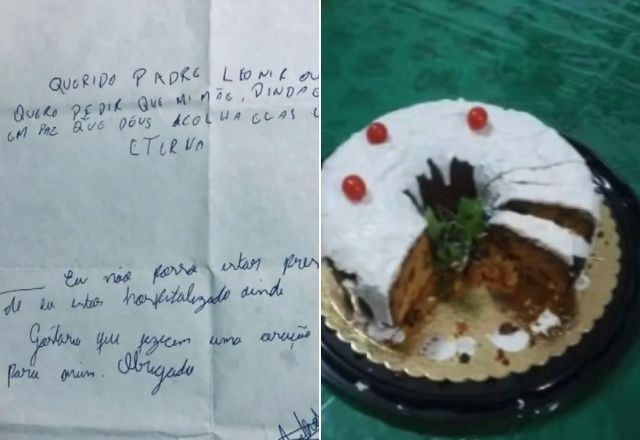 QUERIDO PADRE LEONIR OU
QUERO PEDIR QUE MI MÃE, DINDA E
EM PAZ QUE DEUS ACOLHA ELAS
ETERNA
Eu não posso estar pres
de eu estar hospitalizado ainda
Gostaria que fizicem uma oração
para mim. Obrigado